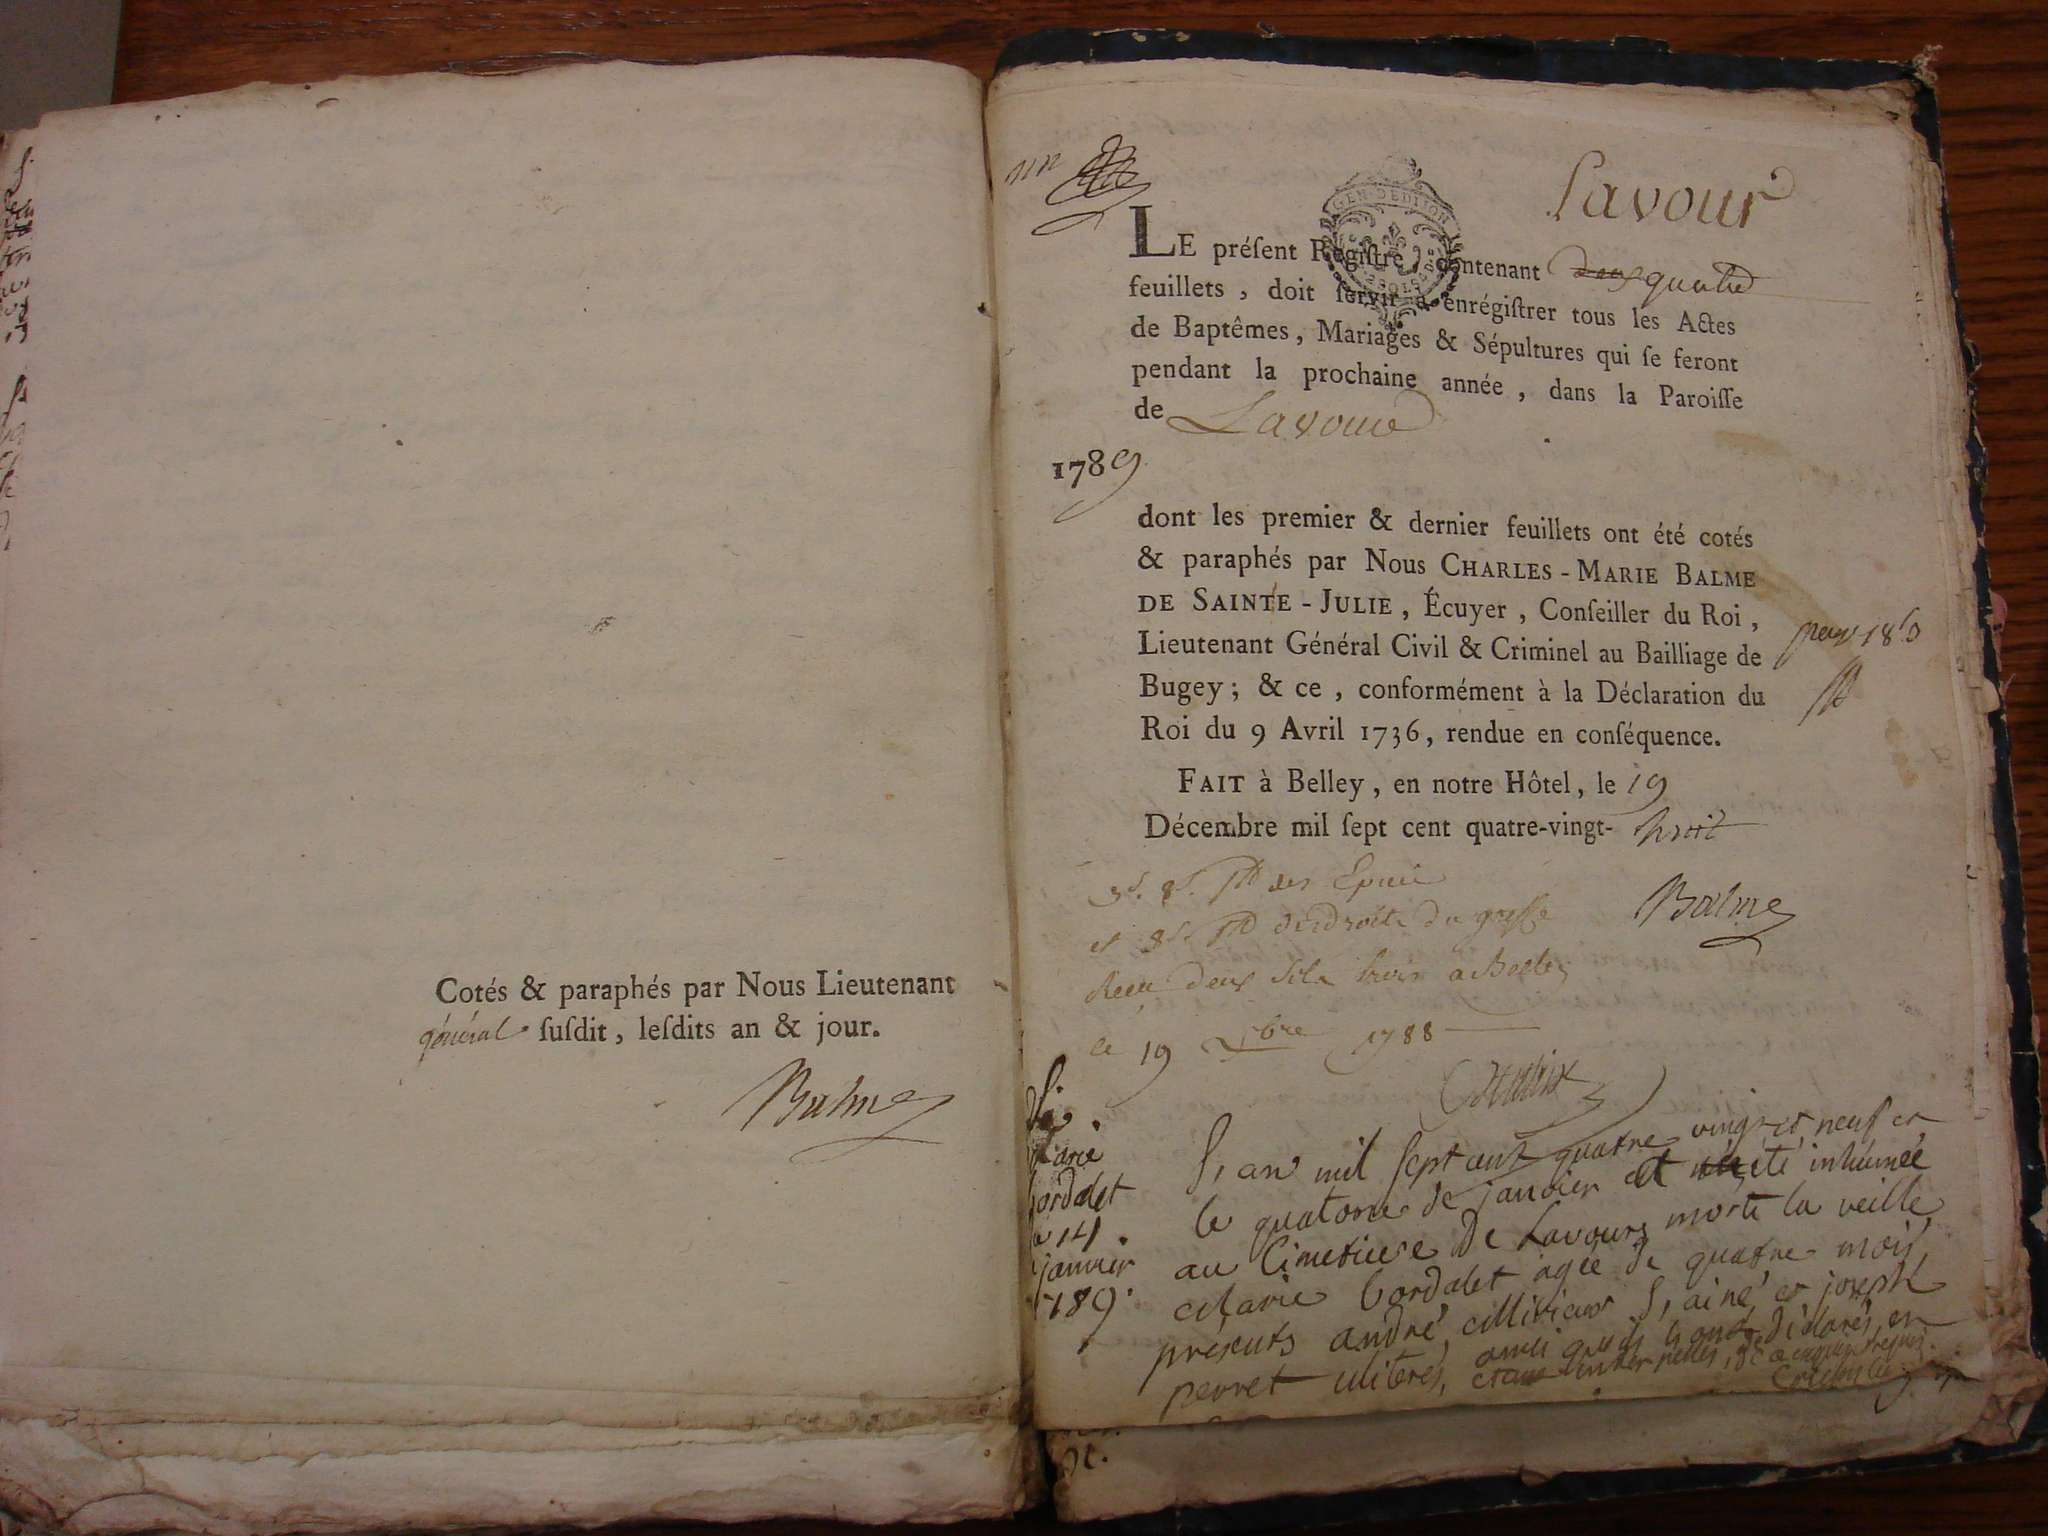 Cotés & paraphés par Nous Lieutenant
général ſuſdit, leſdits an & jour.
Balme
un
GEN. DE DIJON
Lavour
LE préſent Regiſtre, contenant deux quatre
feuillets, doit ſervir à enrégiſtrer tous les Actes
de Baptêmes, Mariages & Sépultures qui ſe feront
pendant la prochaine année, dans la Paroiſſe
de Lavour
1789
dont les premier & dernier feuillets ont été cotés
& paraphés par Nous CHARLES-MARIE BALME
DE SAINTE-JULIE, Écuyer, Conſeiller du Roi,
Lieutenant Général Civil & Criminel au Bailliage de
Bugey; & ce, conformément à la Déclaration du
Roi du 9 Avril 1736, rendue en conſéquence.
FAIT à Belley, en notre Hôtel, le 19
Décembre mil ſept cent quatre-vingt- huit
Balme
et 8s. droits du greffe
Reçu deux sols trois a Belley
le 19 Xbre 1788
marie
bordalet
le 14
janvier
1789.
L'an mil sept cent quatre vingt et neuf et
le quatorze de janvier a été inhumée
au Cimetiere De Lavours morte la veille
Marie bordalet agée de quatre mois,
présents andré Millieur L'ainé et joseph
perret illiterés, ainsi qu'ils l'ont déclarés, en
étant interpellés, de ce enquis et requis.